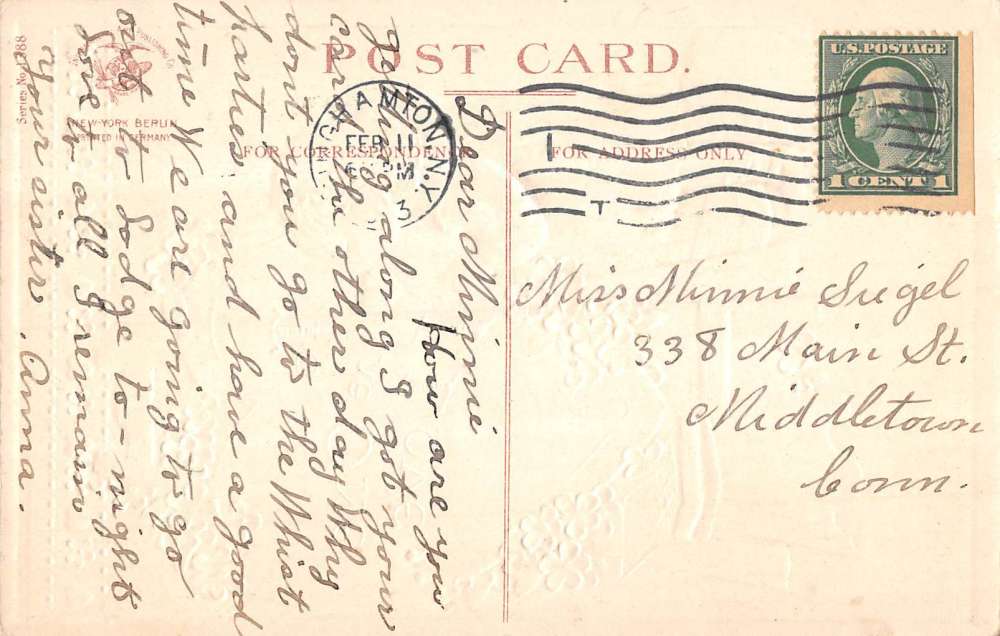 POST CARD.
FOR CORRESPONDENCE
FOR ADDRESS ONLY
Series No. 888
NEW-YORK BERLIN
PRINTED IN GERMANY
U.S. POSTAGE
1 CENT 1
GHAMTON, N.Y.
FEB 11
PM
3
1
T
Miss Minnie Siegel
338 Main St.
Middletown
Conn.
Dear Minnie
How are you
getting along I got your
card the other day Why
dont you go to the Whist
parties and have a good
time We are going to go
out to Lodge to-night
Love to all I remain
Your sister. Anna.